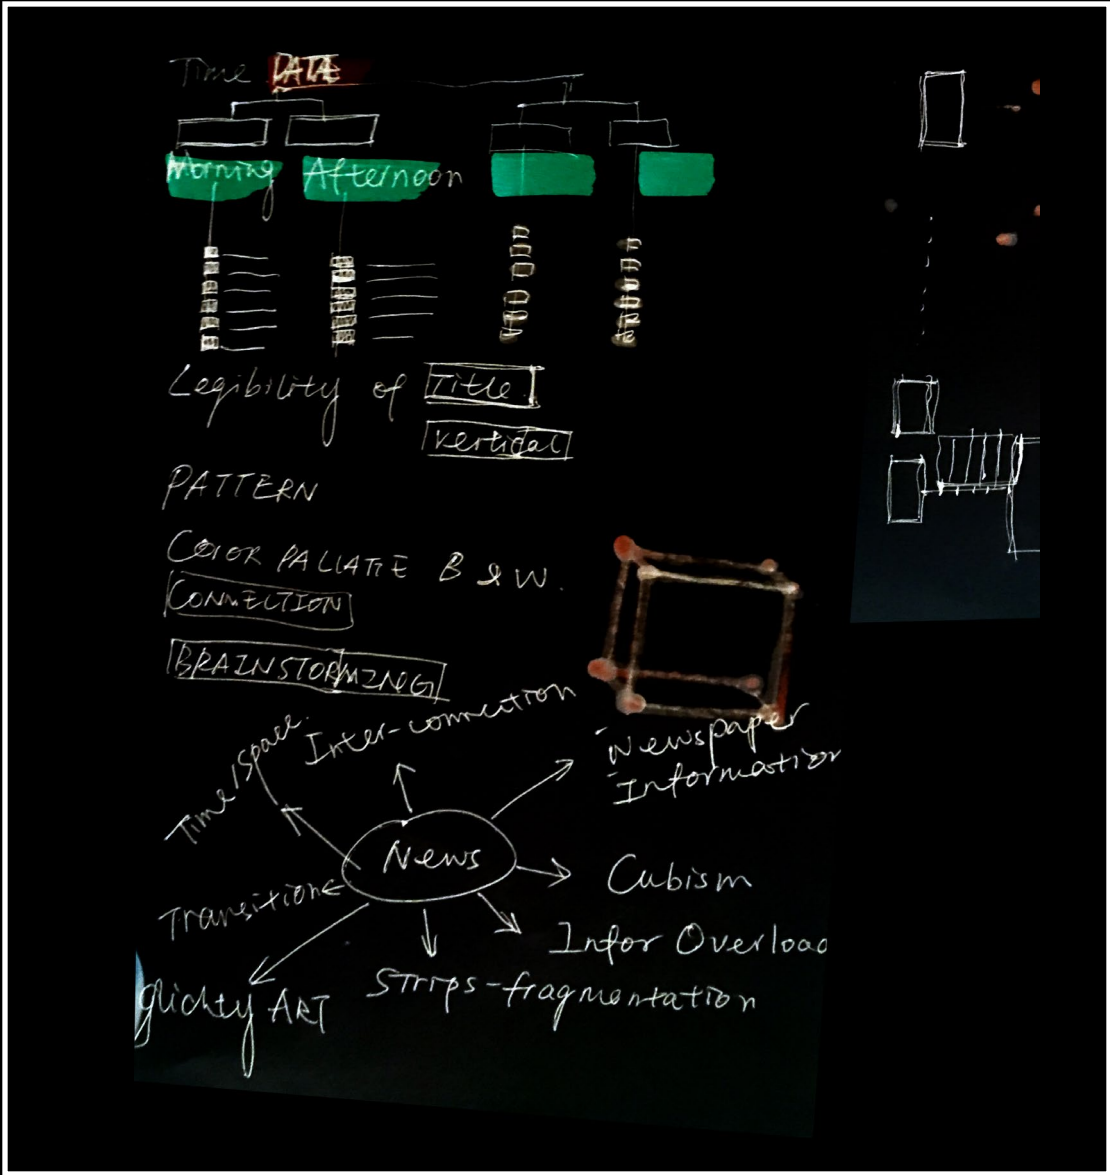 Time DATA
Morning Afternoon
Legibility of Title
Vertical
PATTERN
COLOR PALLATTE B & W.
CONNECTION
BRAINSTORMING
Inter-connection
Time/Space.
Newspaper
Information
News
Cubism
Transition
Infor Overload
Strips-fragmentation
glichty ART